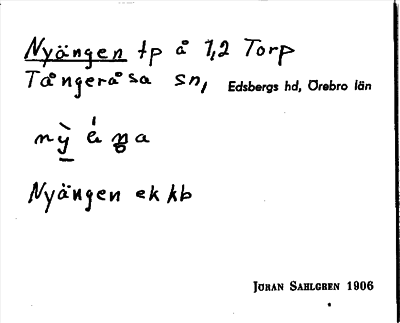 Nyängen tp å 1,2 Torp
Tångeråsa sn, Edsbergs hd, Örebro län
Nyängen ek kb
JÖRAN SAHLGREN 1906